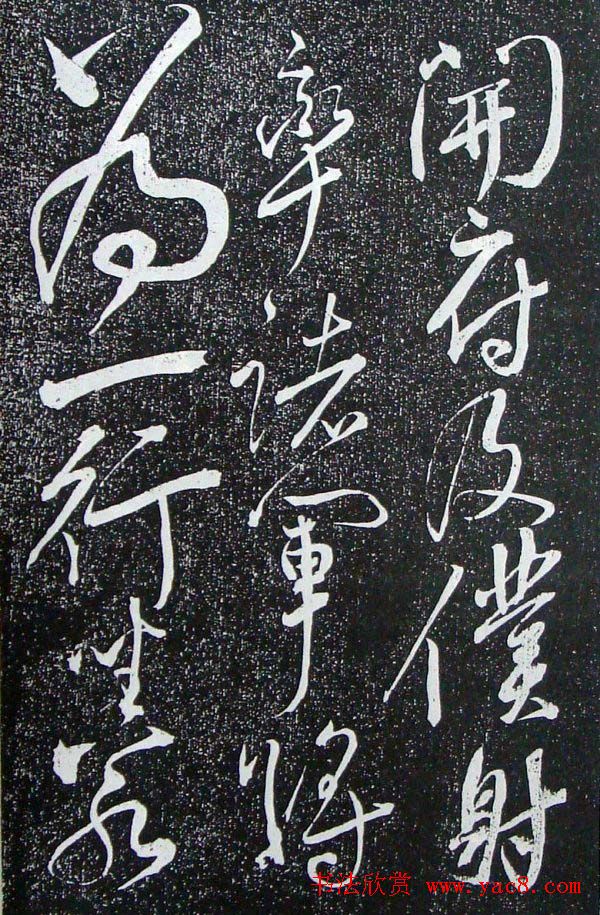 開府及僕射
率諸軍將
為一行坐若
书法欣赏 www.yac8.com